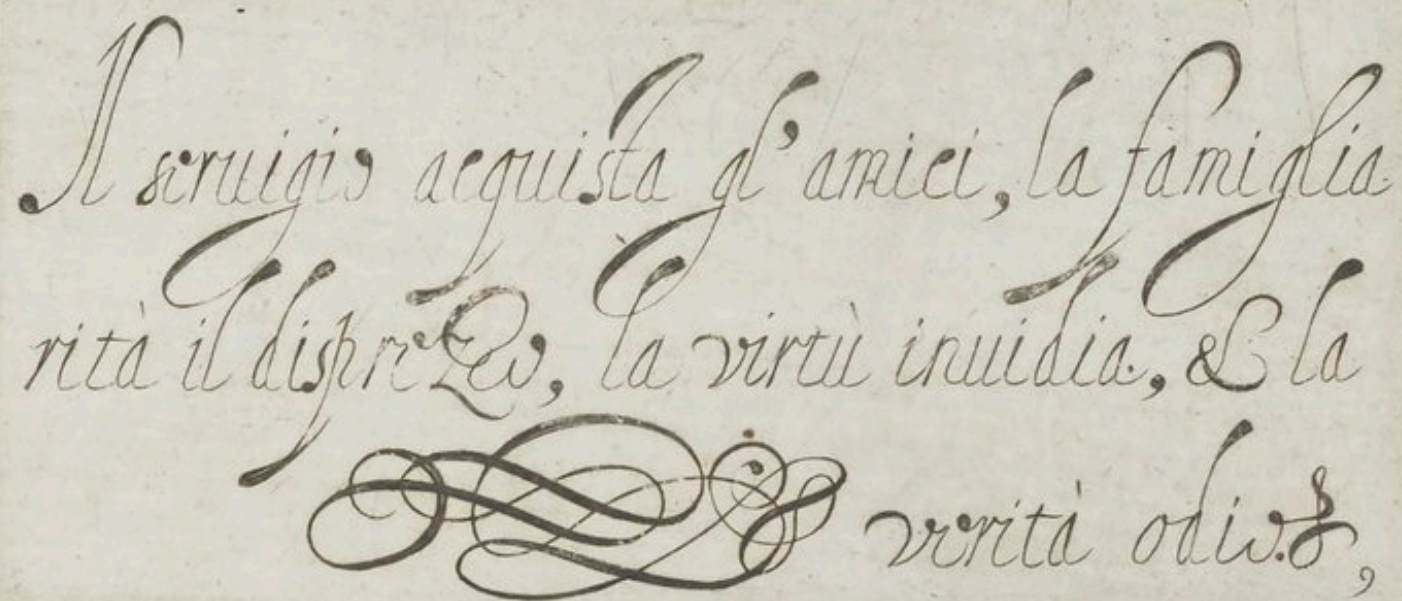 Il seruigio acquista gl' amici, la famiglia
rità il disprezzo, la virtù inuidia, & la
verità odio.